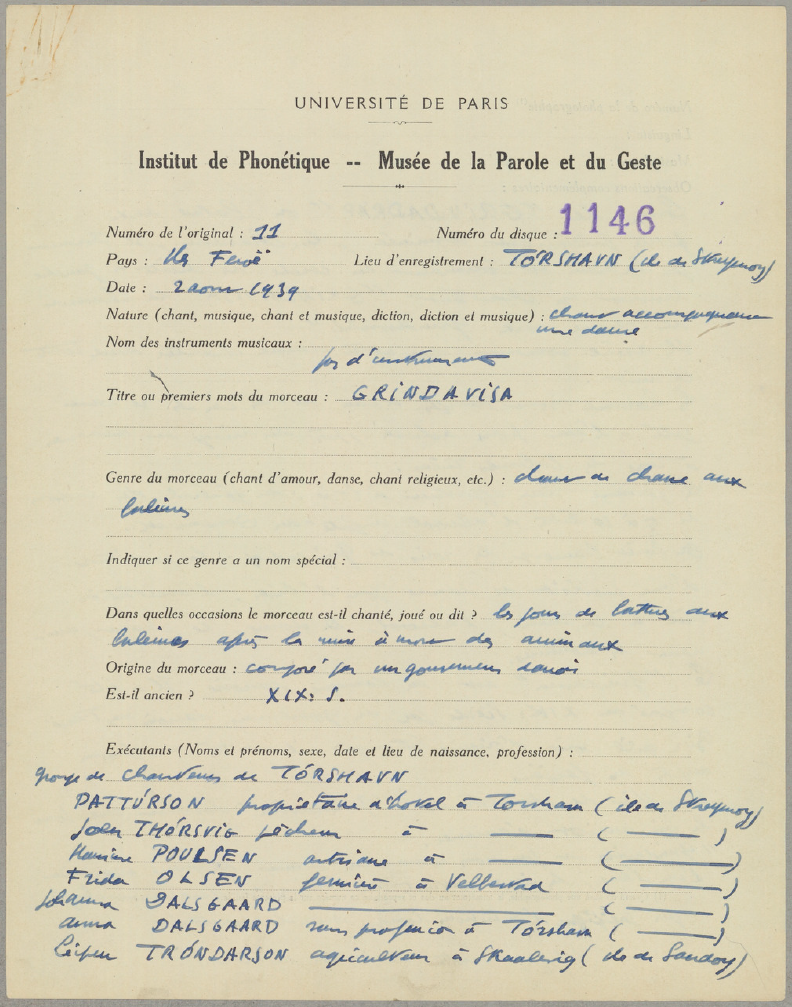 UNIVERSITÉ DE PARIS
Institut de Phonétique -- Musée de la Parole et du Geste
Numéro de l'original : 11 Numéro du disque : 1146
Pays : Iles Feroë Lieu d'enregistrement : TÓRSHAVN (ile de Streymoy)
Date : 2 aout 1939
Nature (chant, musique, chant et musique, diction, diction et musique) : chant accompagnant
une danse
Nom des instruments musicaux :
pas d'instruments
Titre ou premiers mots du morceau : GRINDAVISA
Genre du morceau (chant d'amour, danse, chant religieux, etc.) : chant de chasse aux
baleines
Indiquer si ce genre a un nom spécial :
Dans quelles occasions le morceau est-il chanté, joué ou dit ? les jours de battues aux
baleines après la mise à mort des animaux
Origine du morceau : composé par un gouverneur danois
Est-il ancien ? XIX: S.
Exécutants (Noms et prénoms, sexe, date et lieu de naissance, profession) :
groupe de chanteurs de TÓRSHAVN
PATTURSON propriétaire d'hotel à Torshavn (ile de Streymoy)
THÓRSVIG pêcheur à — ( — )
POULSEN artisane à — ( — )
Frida OLSEN fermière à ( — )
Johanna DALSGAARD — ( — )
Anna DALSGAARD sans profession à Tórshavn ( — )
TRÓNDARSON agriculteur à (ile de Sandoy)